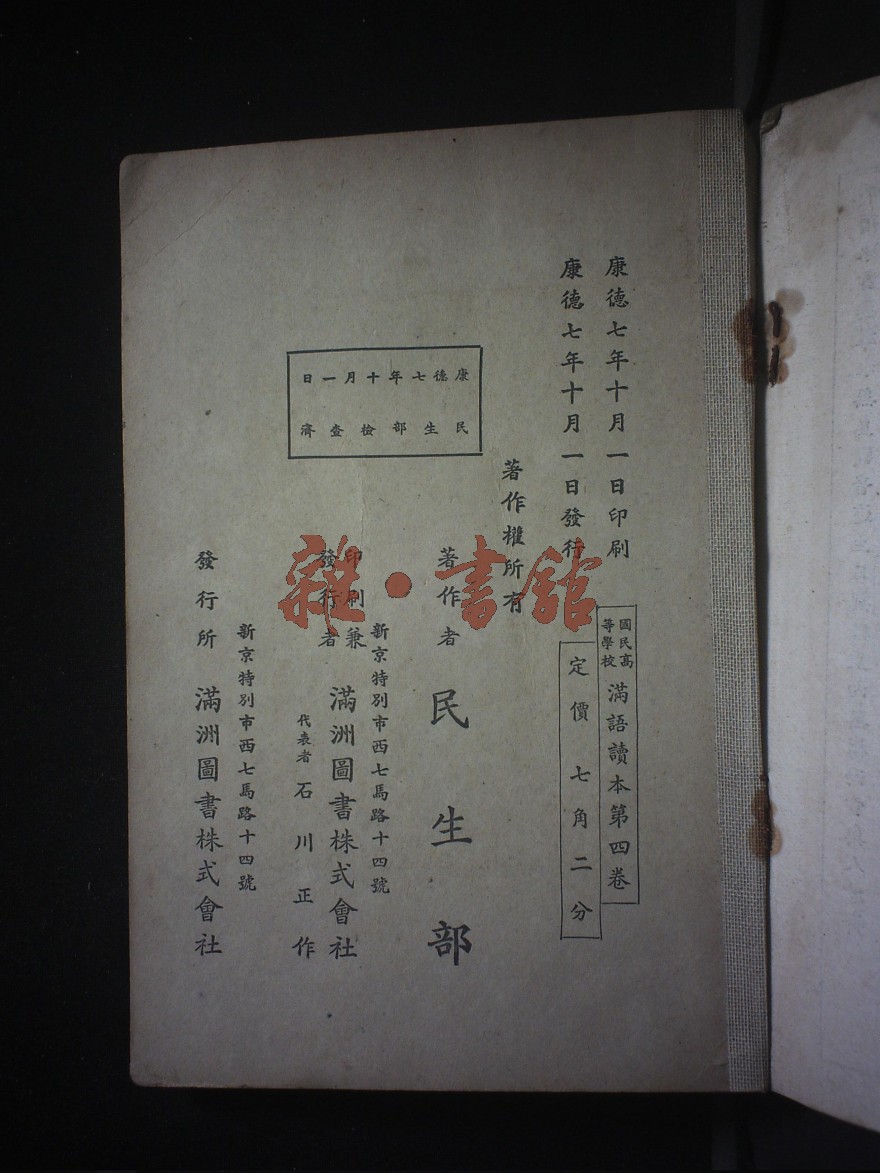 康德七年十月一日印刷
康德七年十月一日發行
國民高等學校 滿語讀本第四卷
定價 七角二分
著作權所有
康德七年十月一日
民生部檢查濟
著作者 民生部
新京特別市西七馬路十四號
印刷兼發行者 滿洲圖書株式會社
代表者 石川正作
新京特別市西七馬路十四號
發行所 滿洲圖書株式會社
雜·書館